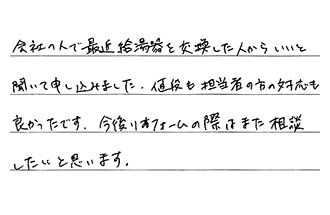 会社の人で最近給湯器を交換した人からいいと
聞いて申し込みました。値段も担当者の方の対応も
良かったです。今後リフォームの際はまた相談
したいと思います。